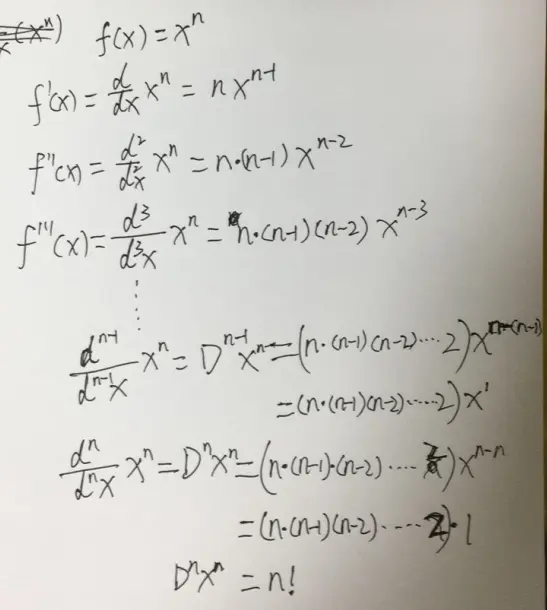 f(x) = xⁿ
f'(x) = d/dx xⁿ = n xⁿ⁻¹
f''(x) = d²/d²x xⁿ = n·(n-1) xⁿ⁻²
f'''(x) = d³/d³x xⁿ = n·(n-1)(n-2) xⁿ⁻³
⋮
dⁿ⁻¹/dⁿ⁻¹x xⁿ = Dⁿ⁻¹xⁿ = (n·(n-1)(n-2)····2)xⁿ⁻⁽ⁿ⁻¹⁾
= (n·(n-1)(n-2)·····2)x¹
dⁿ/dⁿx xⁿ = Dⁿxⁿ = (n·(n-1)·(n-2)····2)xⁿ⁻ⁿ
= (n·(n-1)(n-2)·····2)·1
Dⁿxⁿ = n!